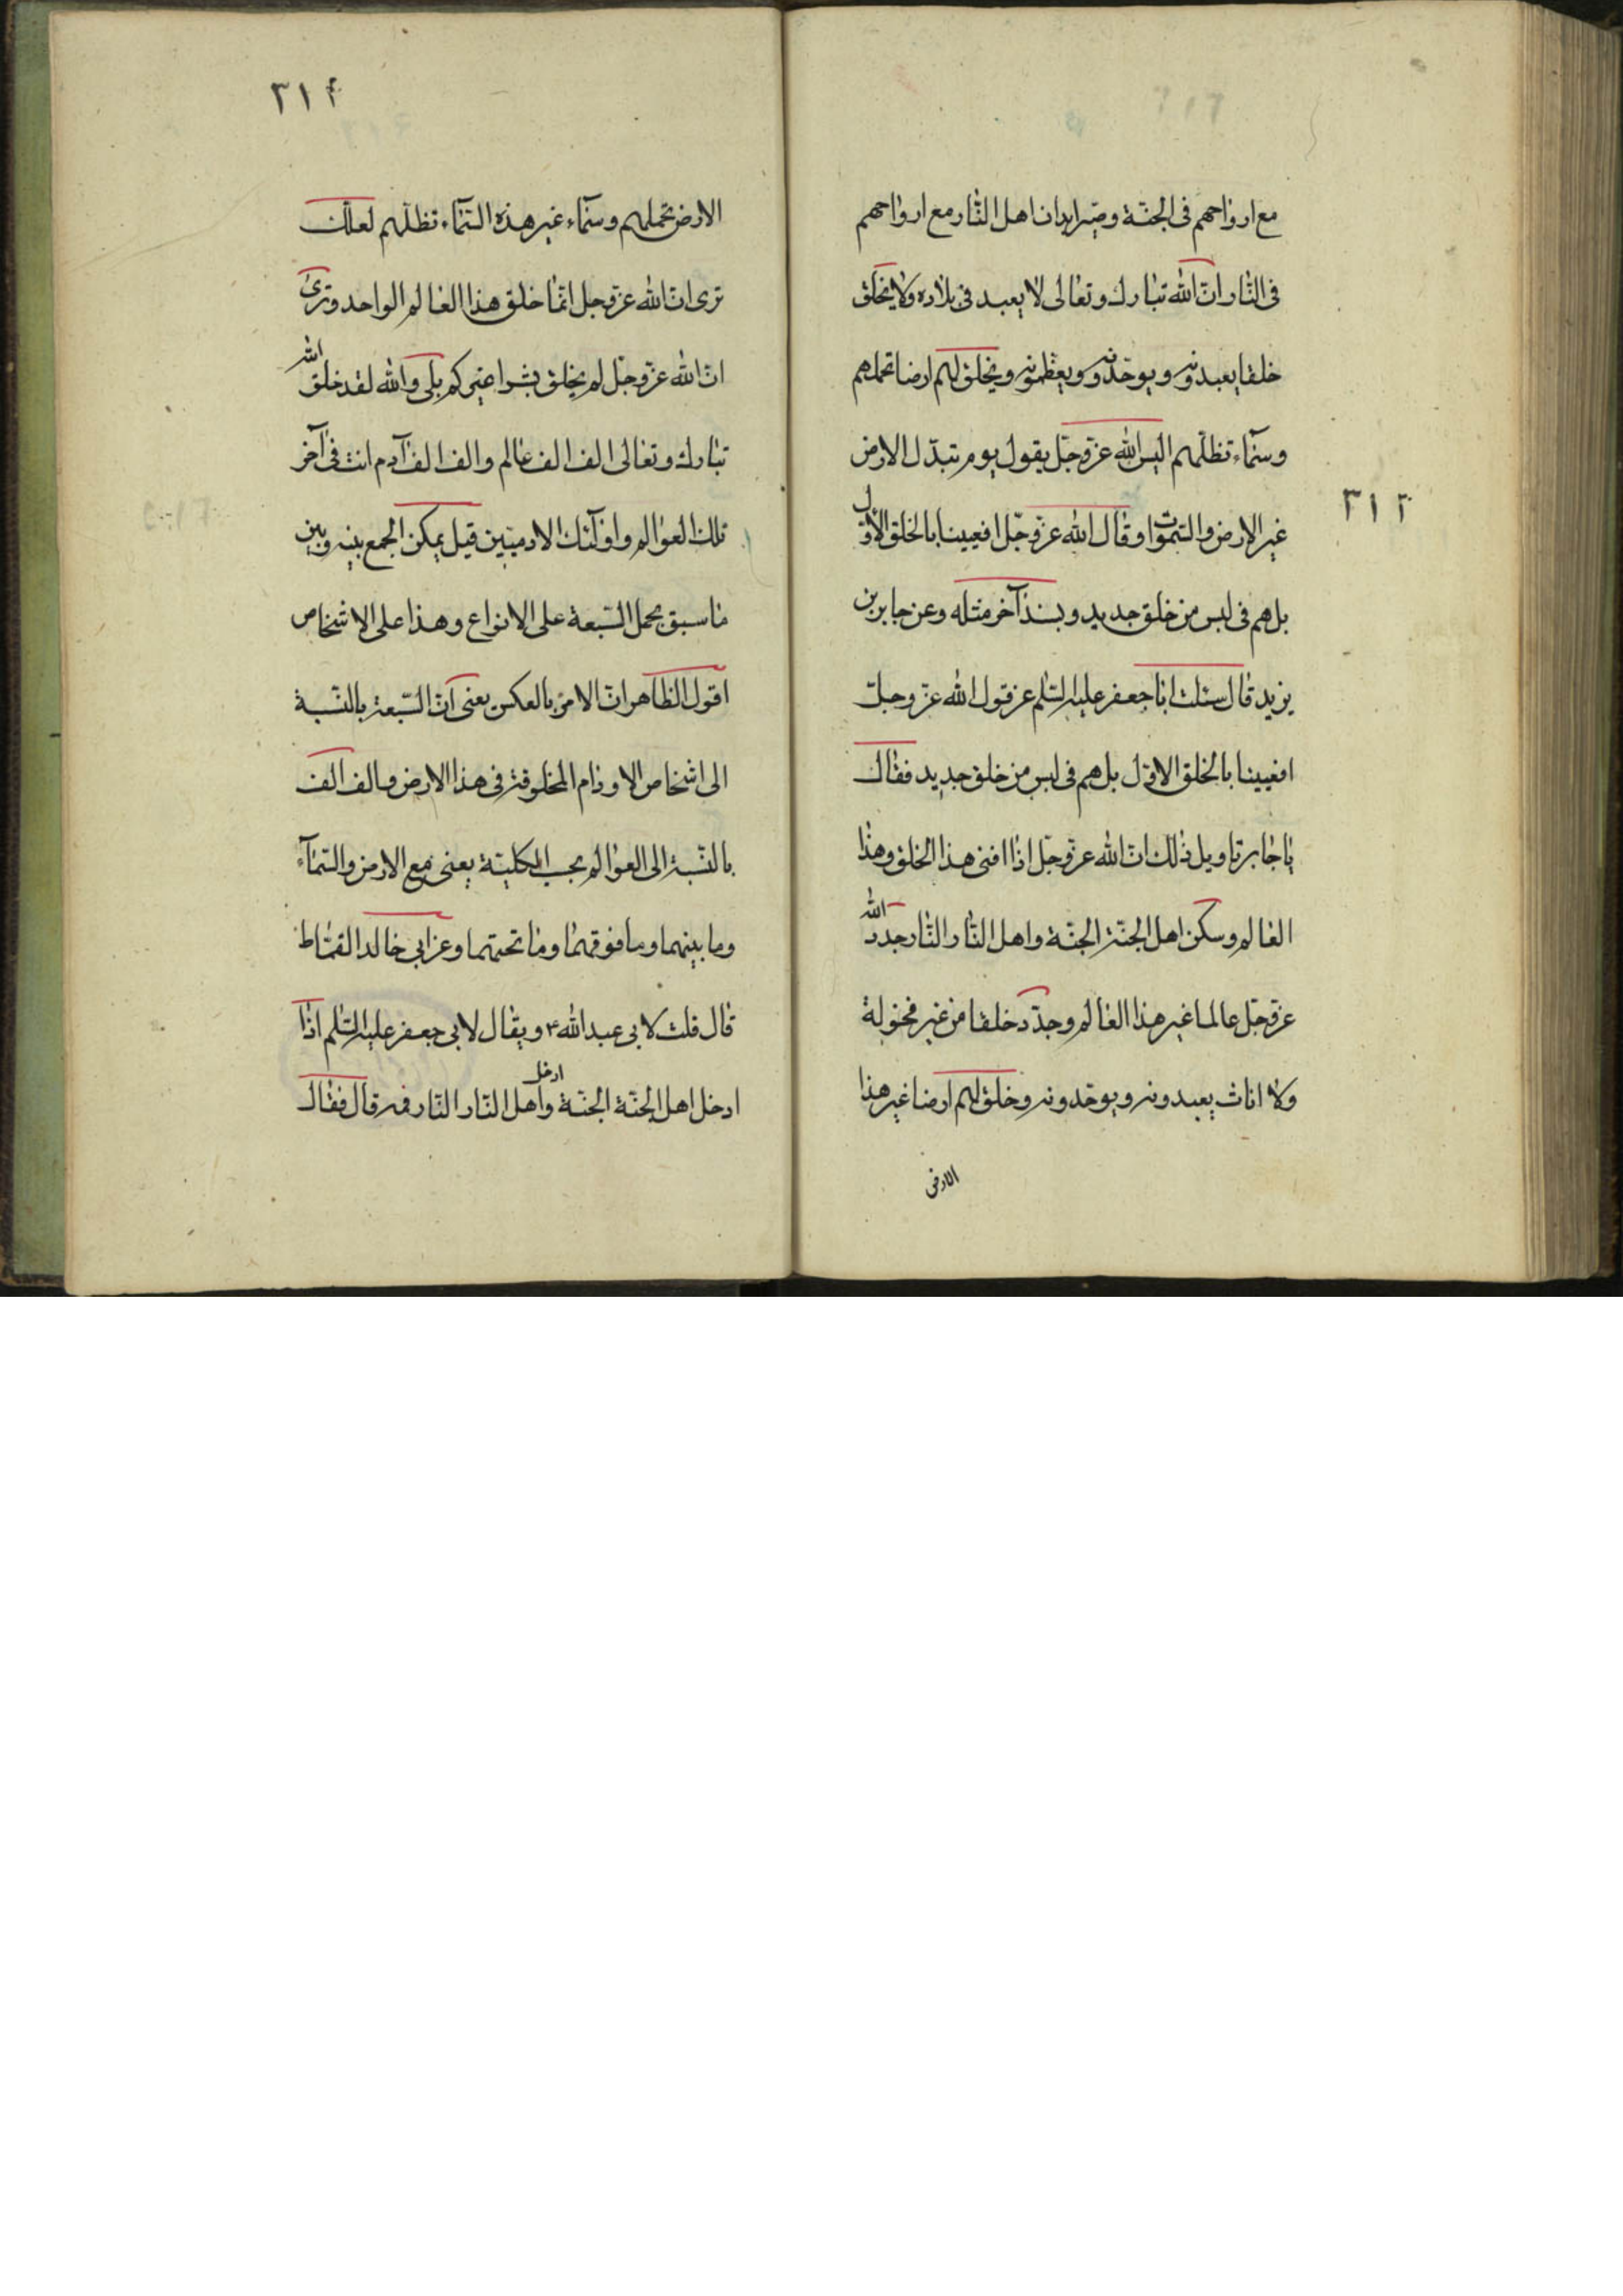 ٣١٣
مع ارواحهم فى الجنّة وصيّر ابدان اهل النّار مع ارواحهم
فى النّار انّ اللّه تبارك وتعالى لا يعبد فى بلاده ولا يخلق
خلقا يعبدونه ويوحّدونه ويعظّمونه ويخلق لهم ارضا تحملهم
وسمآء تظلّهم اليس اللّه عزّ وجلّ يقول يوم تبدّل الارض
غير الارض والسّموات وقال اللّه عزّ وجلّ افعيينا بالخلق الاوّل
بل هم فى لبس من خلق جديد وبسند آخر مثله وعن جابر بن
يزيد قال سئلت ابا جعفر عليه السّلم عن قول اللّه عزّ وجلّ
افعيينا بالخلق الاوّل بل هم فى لبس من خلق جديد فقال
يا جابر تاويل ذلك انّ اللّه عزّ وجلّ اذا افنى هذا الخلق وهذا
العالم وسكن اهل الجنّة الجنّة واهل النّار النّار جدد اللّه
عزّ وجلّ عالما غير هذا العالم وجدّد خلقا من غير فحولة
ولا اناث يعبدونه ويوحّدونه وخلق لهم ارضا غير هذا
الارض
٣١۴
الارض تحملهم وسمآء غير هذه السّمآء تظلّهم لعلّك
ترى انّ اللّه عزّ وجل انّما خلق هذا العالم الواحد وترى
انّ اللّه عزّ وجلّ لم يخلق بشرا غيركم بلى واللّه لقد خلق اللّه
تبارك وتعالى الف الف عالم والف الف آدم انت فى آخر
تلك العوالم واولئك الادميّين قيل يمكن الجمع بينه وبين
ما سبق بحمل السّبعة على الانواع وهذا على الاشخاص
اقول الظاهر انّ الامر بالعكس يعنى انّ السّبعة بالنّسبة
الى اشخاص الاوادم المخلوقة فى هذا الارض والف الف
بالنّسبة الى العوالم بحسب الكليّة يعنى مع الارض والسّمآء
وما بينهما وما فوقهما وما تحتهما وعن ابى خالد القمّاط
قال قلت لابى عبد اللّه ع ويقال لابى جعفر عليه السّلم اذا
ادخل اهل الجنّة الجنّة وادخل اهل النّار النّار فمه قال فقال